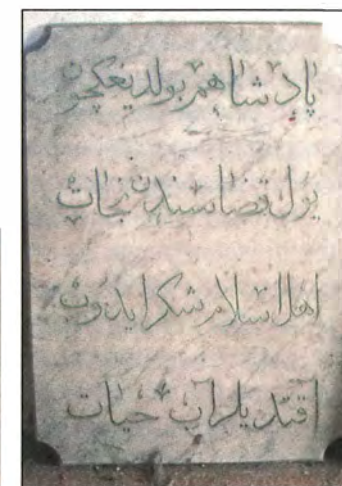 پادشاهم بولدیغیکچون
یول قضاسندن نجات
اهل اسلام شکر ایدوب
اقتدیلر آب حیات